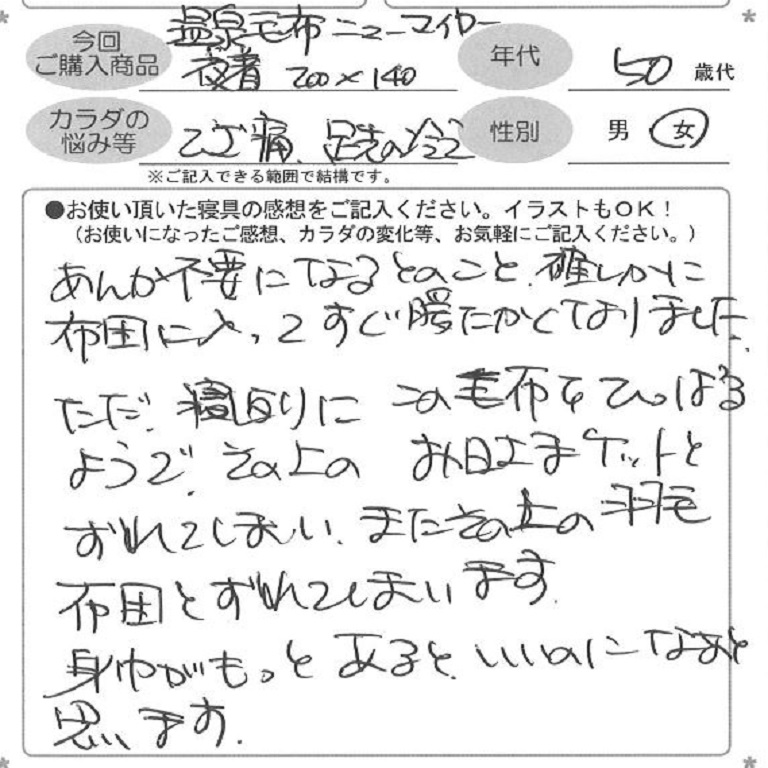 今回
ご購入商品
温泉毛布 ニューマイヤー
夜着 200×140
年代
50 歳代
カラダの
悩み等
ひざ痛、足先の冷え
性別
男 女
※ご記入できる範囲で結構です。
●お使い頂いた寝具の感想をご記入ください。イラストもOK!
(お使いになったご感想、カラダの変化等、お気軽にご記入ください。)
あんか不要になるとのこと、確しかに
布団に入ってすぐ暖たかくなりました。
ただ、寝返りに この毛布をひっぱる
ようで、その上の お日さまケットと
ずれてしまい、またその上の羽毛
布団とずれてしまいます。
身巾がもっとあるといいのになあと
思います。